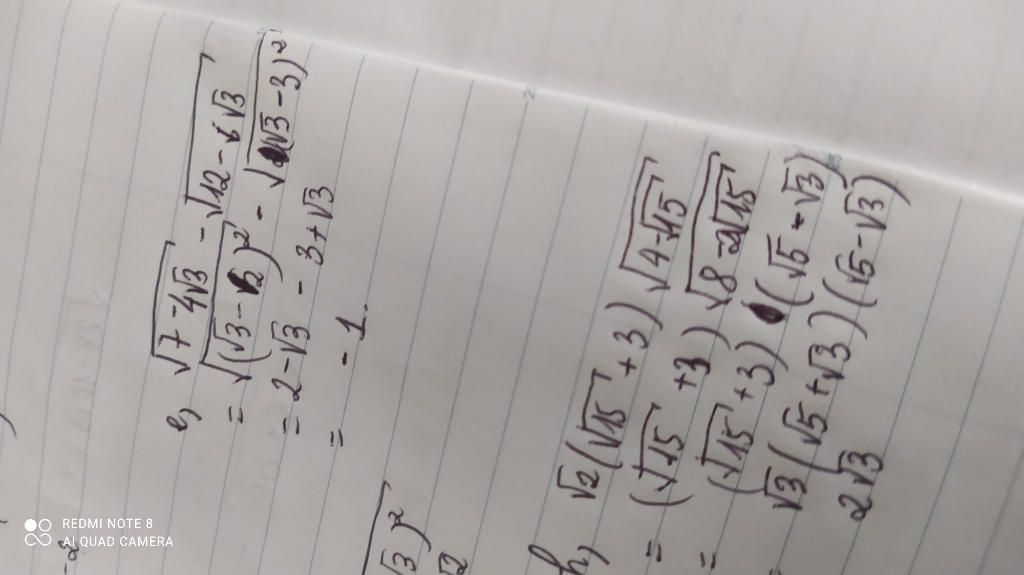 e, √(7 - 4√3) - √(12 - 6√3)
= √((√3 - 2)²) - √((√3 - 3)²)
= 2 - √3 - 3 + √3
= - 1.
√3)²
√2
h, √2(√15 + 3) √(4 - √15)
= (√15 + 3) √(8 - 2√15)
= (√15 + 3) (√5 - √3)
√3(√5 + √3)(√5 - √3)
2√3
-2
REDMI NOTE 8
AI QUAD CAMERA